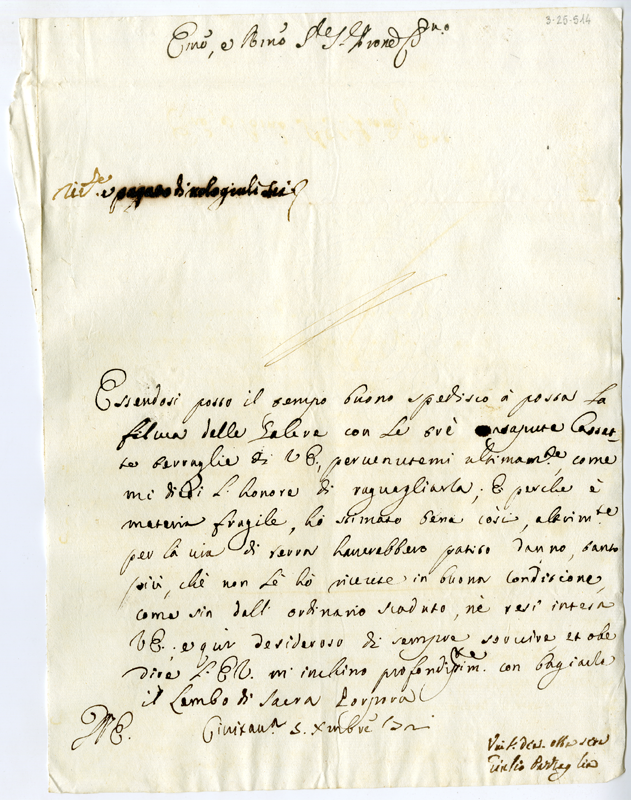 3-25-514
Emo, e Rmo Sre Sre Prone
e pagato di nolo giuli dieci
Essendosi posto il tempo buono spedisco à posta la
filuca delle Galere con le trè consapute Cassat-
te bersaglie di VE, pervenutemi ultimamte, come
mi diedi l'honore di raguagliarla; E perche è
materia fragile, hò stimato bene così, altrimte
per la via di terra haverebbero patito danno, tanto
più, chè non lè hò ricevute in buona condizione,
come sin dall'ordinario scaduto, nè resi intesa
VE.; e quì desideroso di sempre servire et obe
dire l'EV. mi inchino profondissim. con bagiarle
il Lembo di Sacra Porpora
VE. Civitavа 5. Xmbre
Giulio